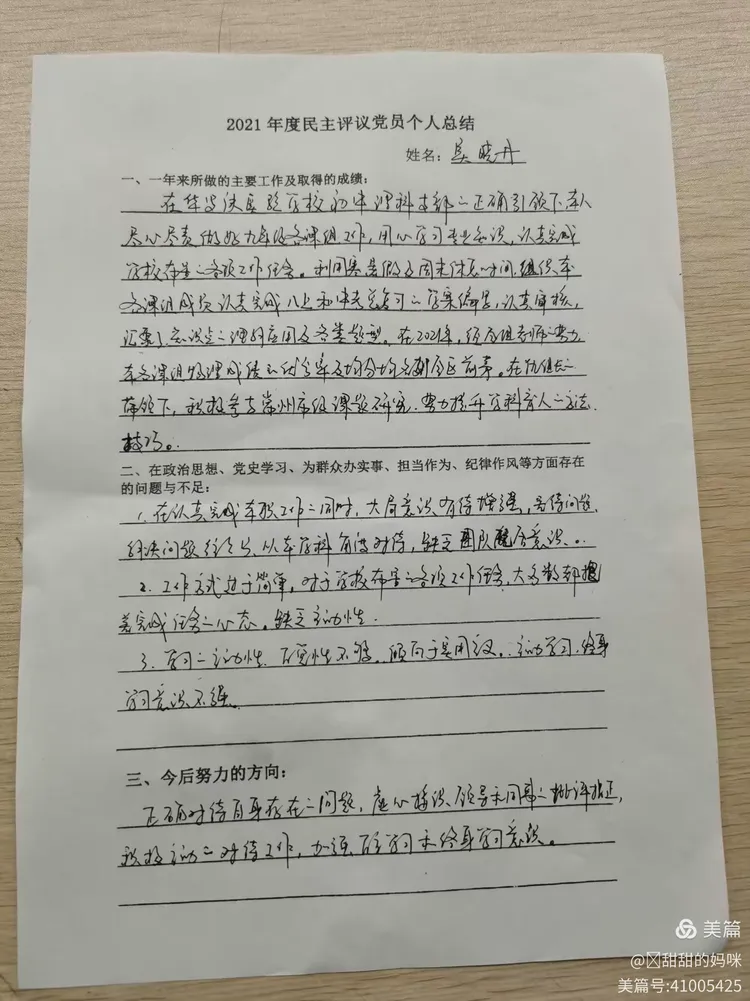 2021 年度民主评议党员个人总结
姓名: 吴晓丹
一、一年来所做的主要工作及取得的成绩:
在华罗庚实验学校初中理科支部的正确引领下,本人
尽心尽责做好九年级备课组工作,用心学习专业知识,认真完成
学校布置的各项工作任务。利用寒暑假及周末休息时间,组织本
备课组成员认真完成八上和中考总复习的学案编写,认真审核,
汇需了知识点的理解应用及各类题型。在2021年,经历组老师的努力
本备课组物理成绩的优分率及均分均名列全区前茅。在
带领下,积极参与常州市级课题研究,努力提升学科育人的方法
技巧。
二、在政治思想、党史学习、为群众办实事、担当作为、纪律作风等方面存在
的问题与不足:
1. 在认真完成本职工作的同时,大局意识有待增强,看待问题、
解决问题往往只从本学科角度对待,缺乏团队配合意识。
2. 工作方式过于简单,对于学校布置的各项工作任务,大多数都抱
着完成任务的心态。缺乏主动性.
3. 学习的主动性、自觉性不够,倾向于实用主义。主动学习、终身
学习意识不强。
三、今后努力的方向:
正确对待自身存在的问题,虚心接受领导和同事的批评指正,
积极主动的对待工作,加强自主学习和终身学习意识。
美篇
@甜甜的妈咪
美篇号:41005425